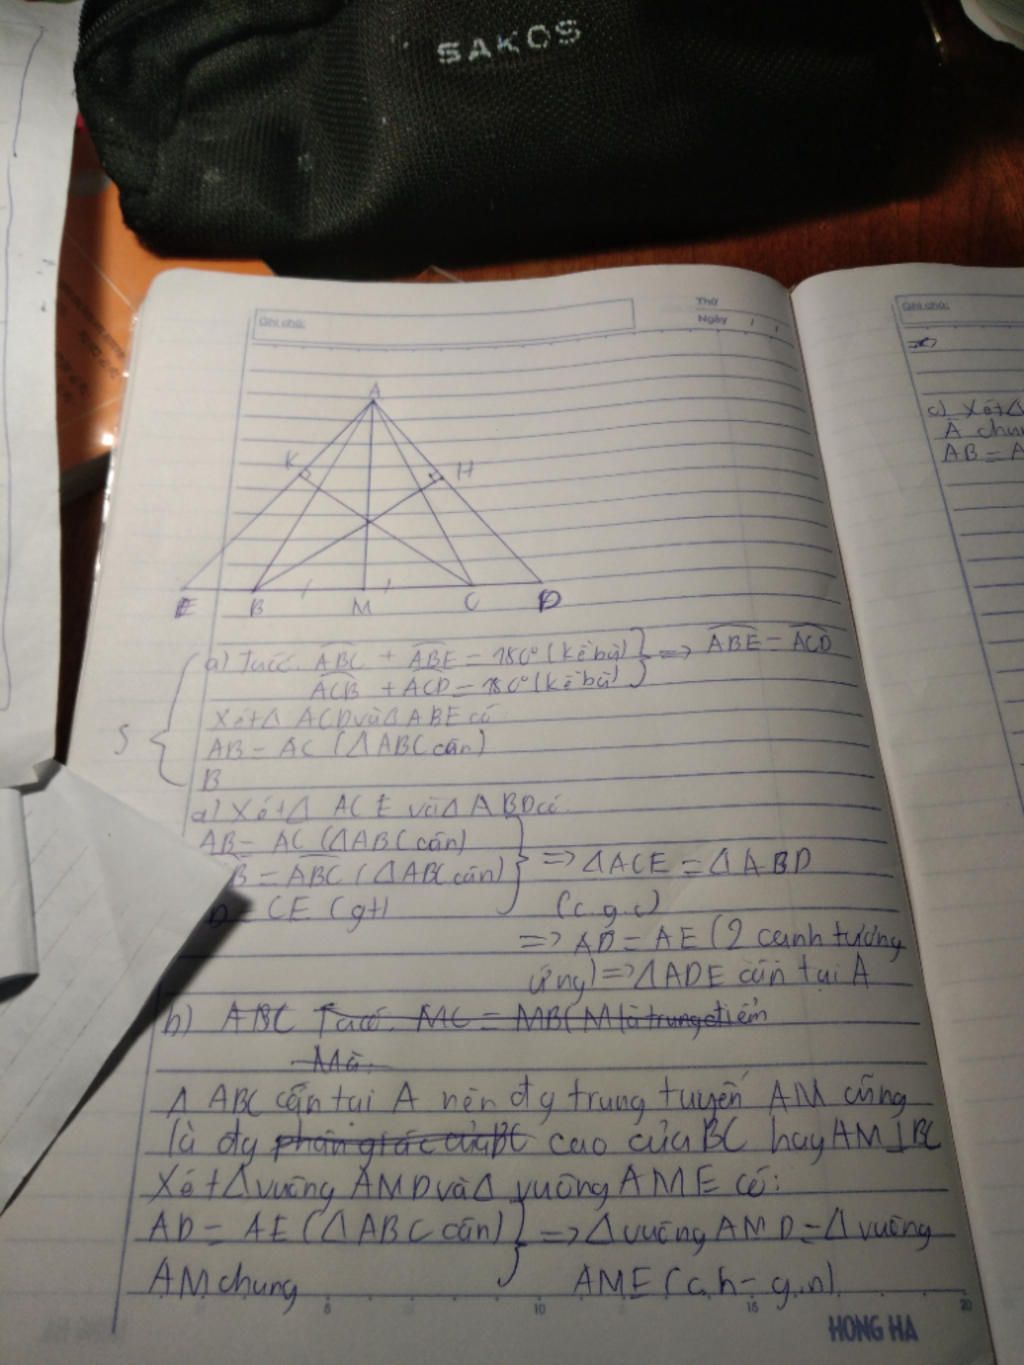 SAKOS
Ghi chú:
Thứ
Ngày / /
A
K
H
E B M C D
a) Ta có: ABC + ABE = 180° (kề bù) } => ABE = ACD
ACB + ACD = 180° (kề bù)
Xét Δ ACD và Δ ABE có
AB = AC (Δ ABC cân)
S
B
a) Xét Δ ACE và Δ ABD có:
AB = AC (Δ ABC cân)
B = ABC (Δ ABC cân) } => Δ ACE = Δ ABD
= CE (gt) (c.g.c)
=> AD = AE (2 cạnh tương
ứng) => Δ ADE cân tại A
b) ABC Ta có: MC = MB (M là trung điểm
Mà:
Δ ABC cân tại A nên đg trung tuyến AM cũng
là đg phân giác của BC cao của BC hay AM ⊥ BC
Xét Δ vuông AMD và Δ vuông AME có:
AD = AE (Δ ABC cân) } => Δ vuông AMD = Δ vuông
AM chung AME (c.h - g.n)
5 10 15 20
HONG HA
Ghi chú:
=>
c) Xét Δ
A chun
AB = A